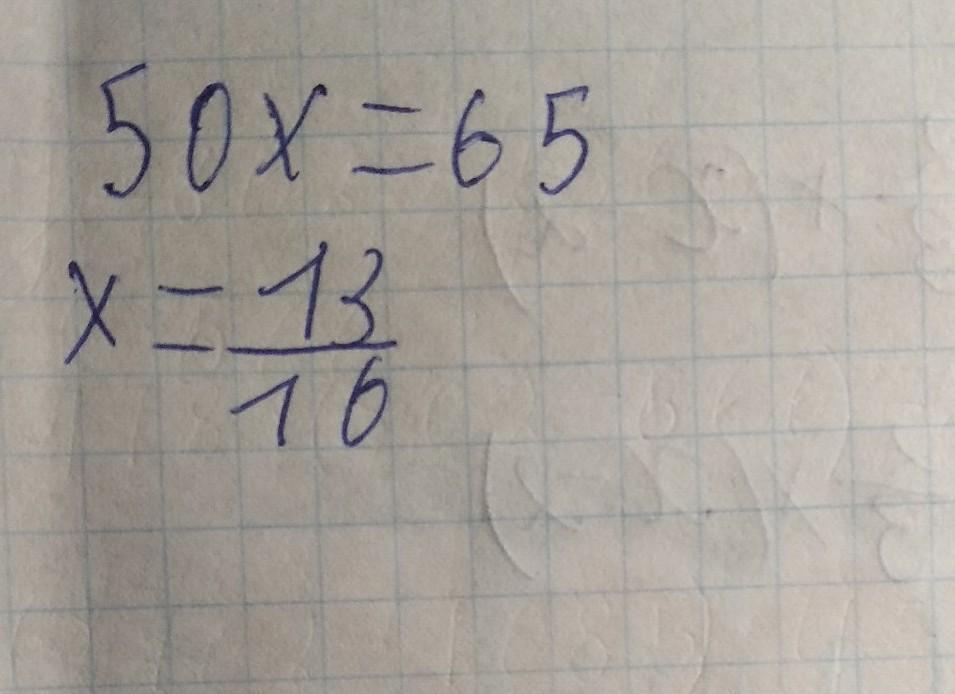 50x=65
x=13/10